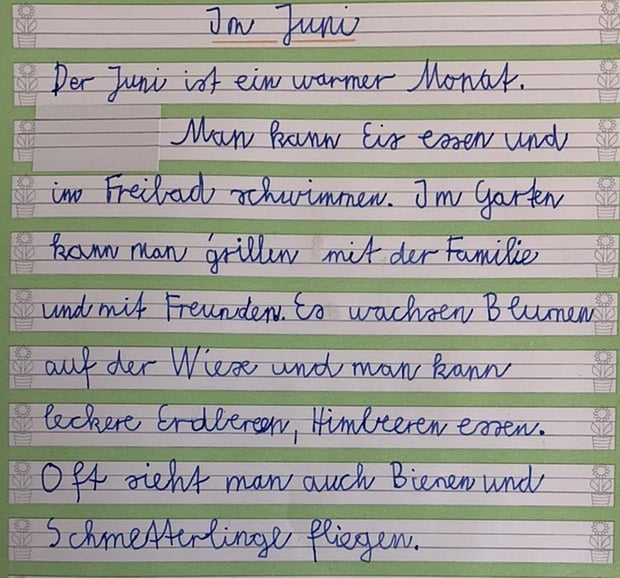 Im Juni
Der Juni ist ein warmer Monat.
Man kann Eis essen und
im Freibad schwimmen. Im Garten
kann man grillen mit der Familie
und mit Freunden. Es wachsen Blumen
auf der Wiese und man kann
leckere Erdbeeren, Himbeeren essen.
Oft sieht man auch Bienen und
Schmetterlinge fliegen.